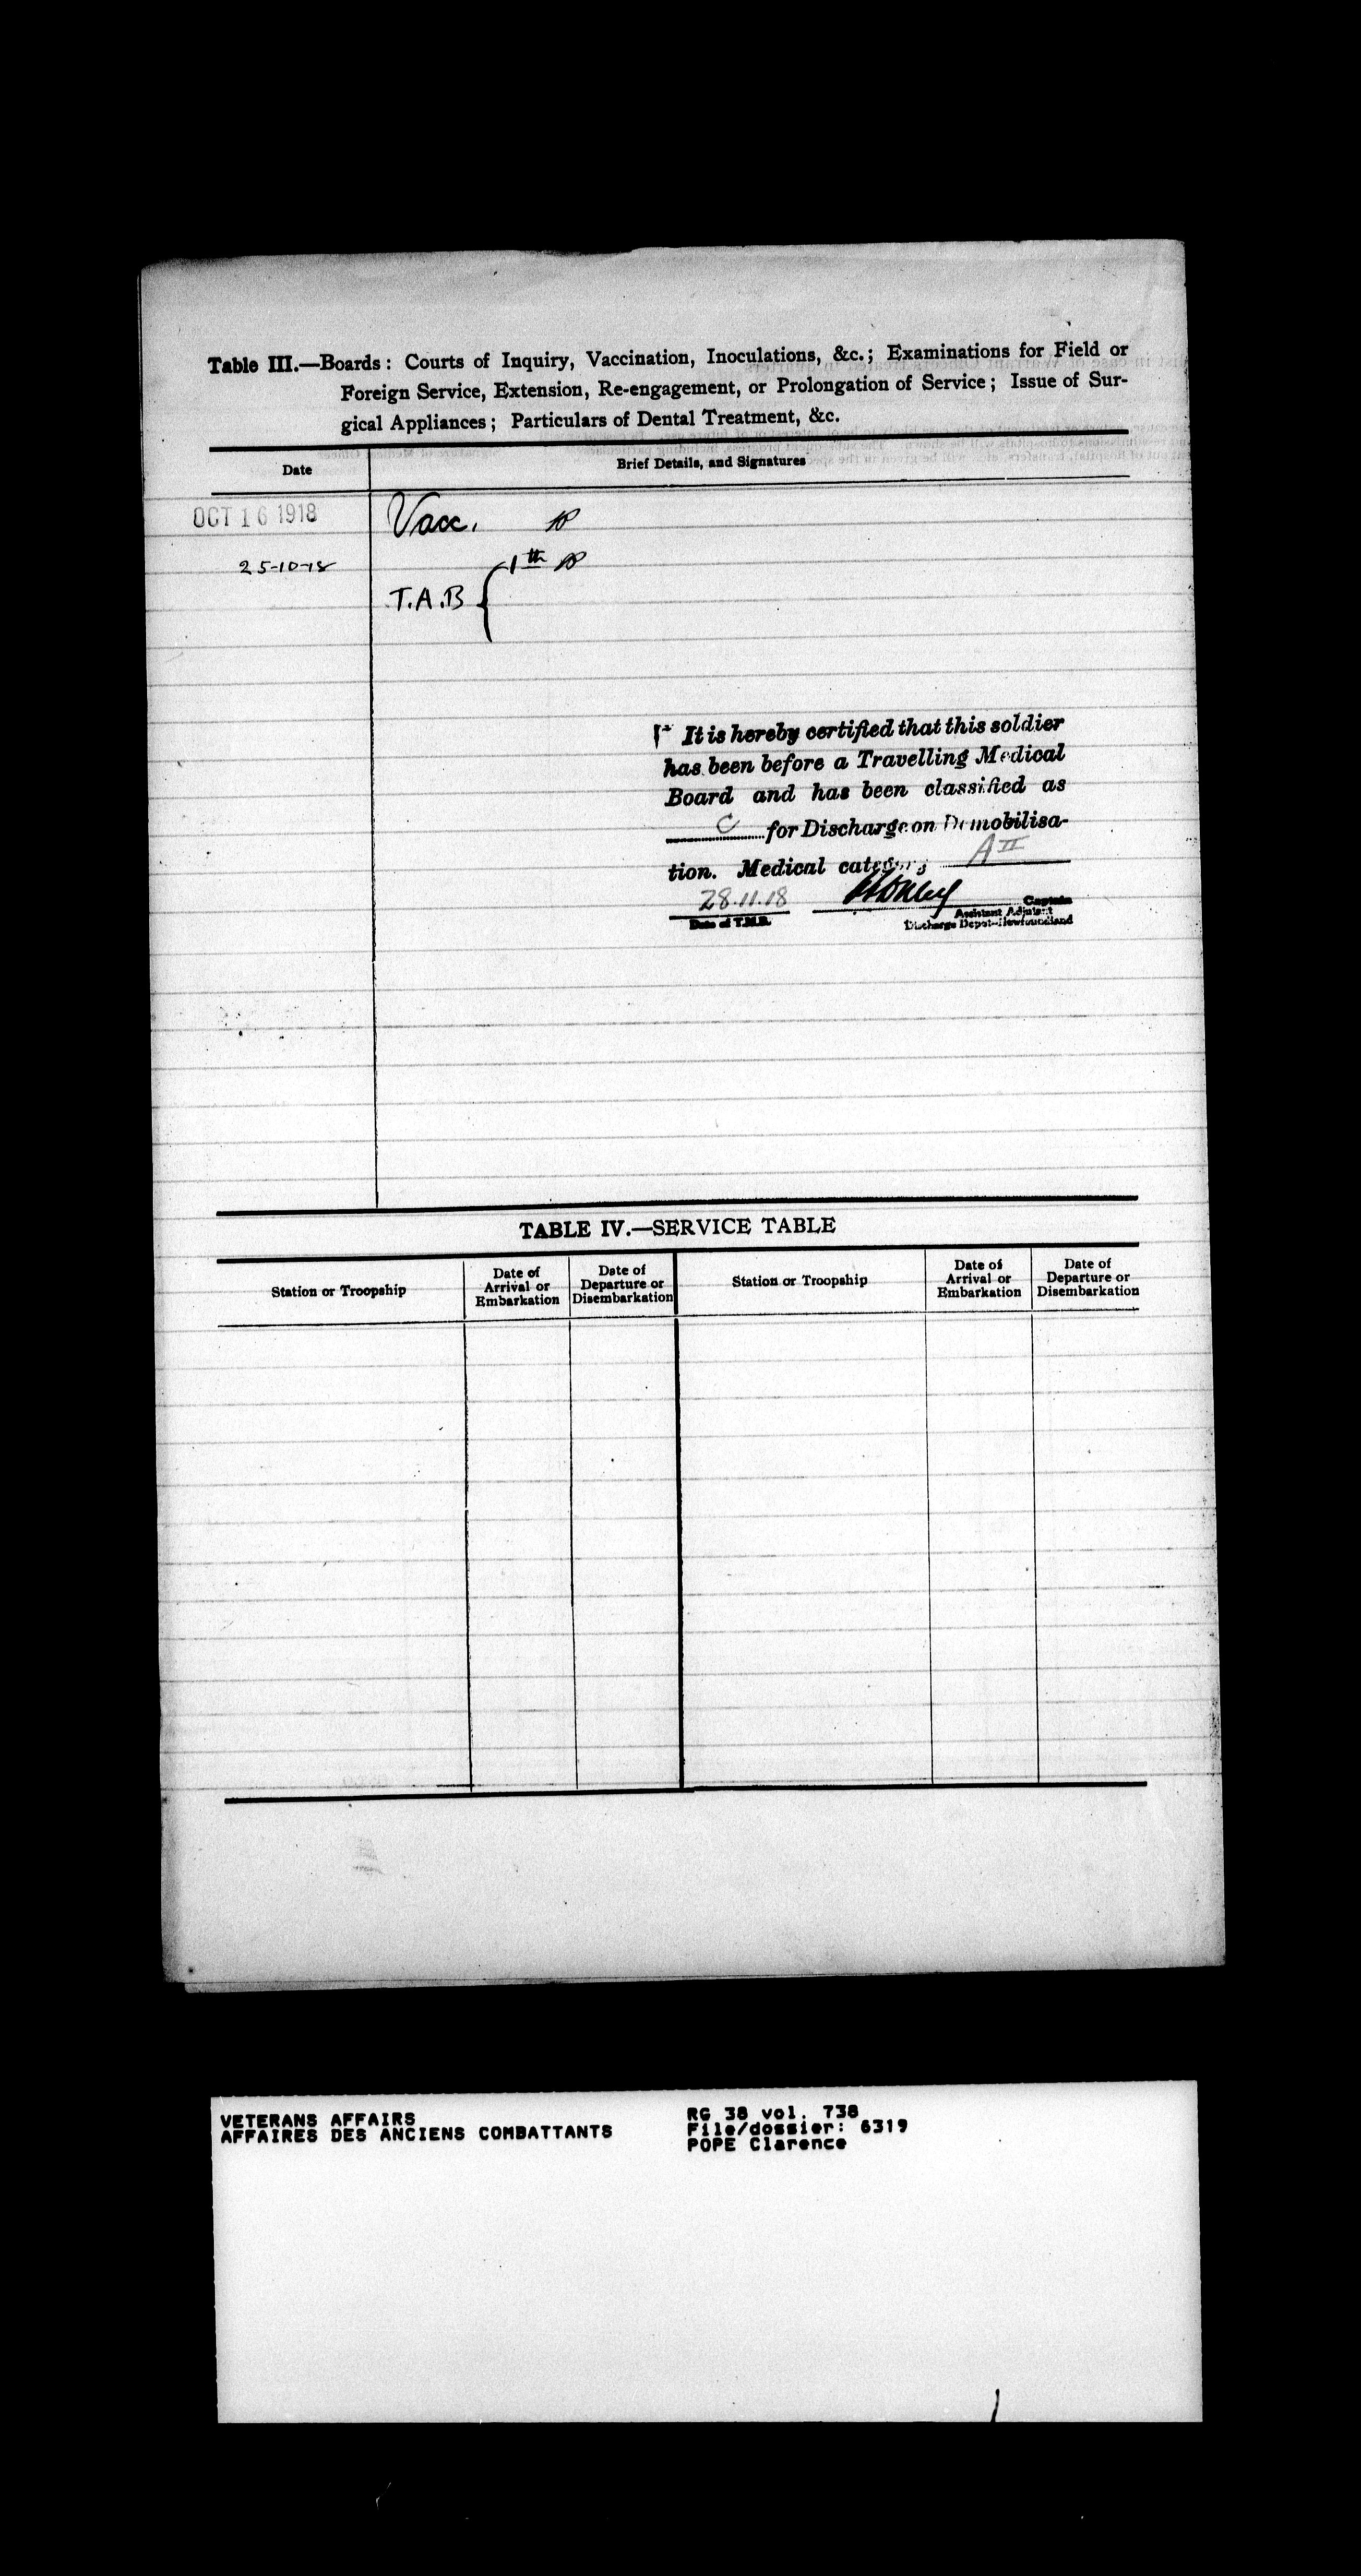 Table III.—Boards: Courts of Inquiry, Vaccination, Inoculations, &c.; Examinations for Field or
Foreign Service, Extension, Re-engagement, or Prolongation of Service; Issue of Sur-
gical Appliances; Particulars of Dental Treatment, &c.
Date
Brief Details, and Signatures
OCT 16 1918
Vacc.
25-10-18
1th
T.A.B
It is hereby certified that this soldier
has been before a Travelling Medical
Board and has been classified as
C for Discharge on Demobilisa-
tion. Medical category A II
28.11.18
Captain
Date of T.M.B.
Assistant Adjutant
Discharge Depot—Newfoundland
TABLE IV.—SERVICE TABLE
Station or Troopship
Date of
Arrival or
Embarkation
Date of
Departure or
Disembarkation
Station or Troopship
Date of
Arrival or
Embarkation
Date of
Departure or
Disembarkation
VETERANS AFFAIRS
AFFAIRES DES ANCIENS COMBATTANTS
RG 38 vol. 738
File/dossier: 6319
POPE Clarence